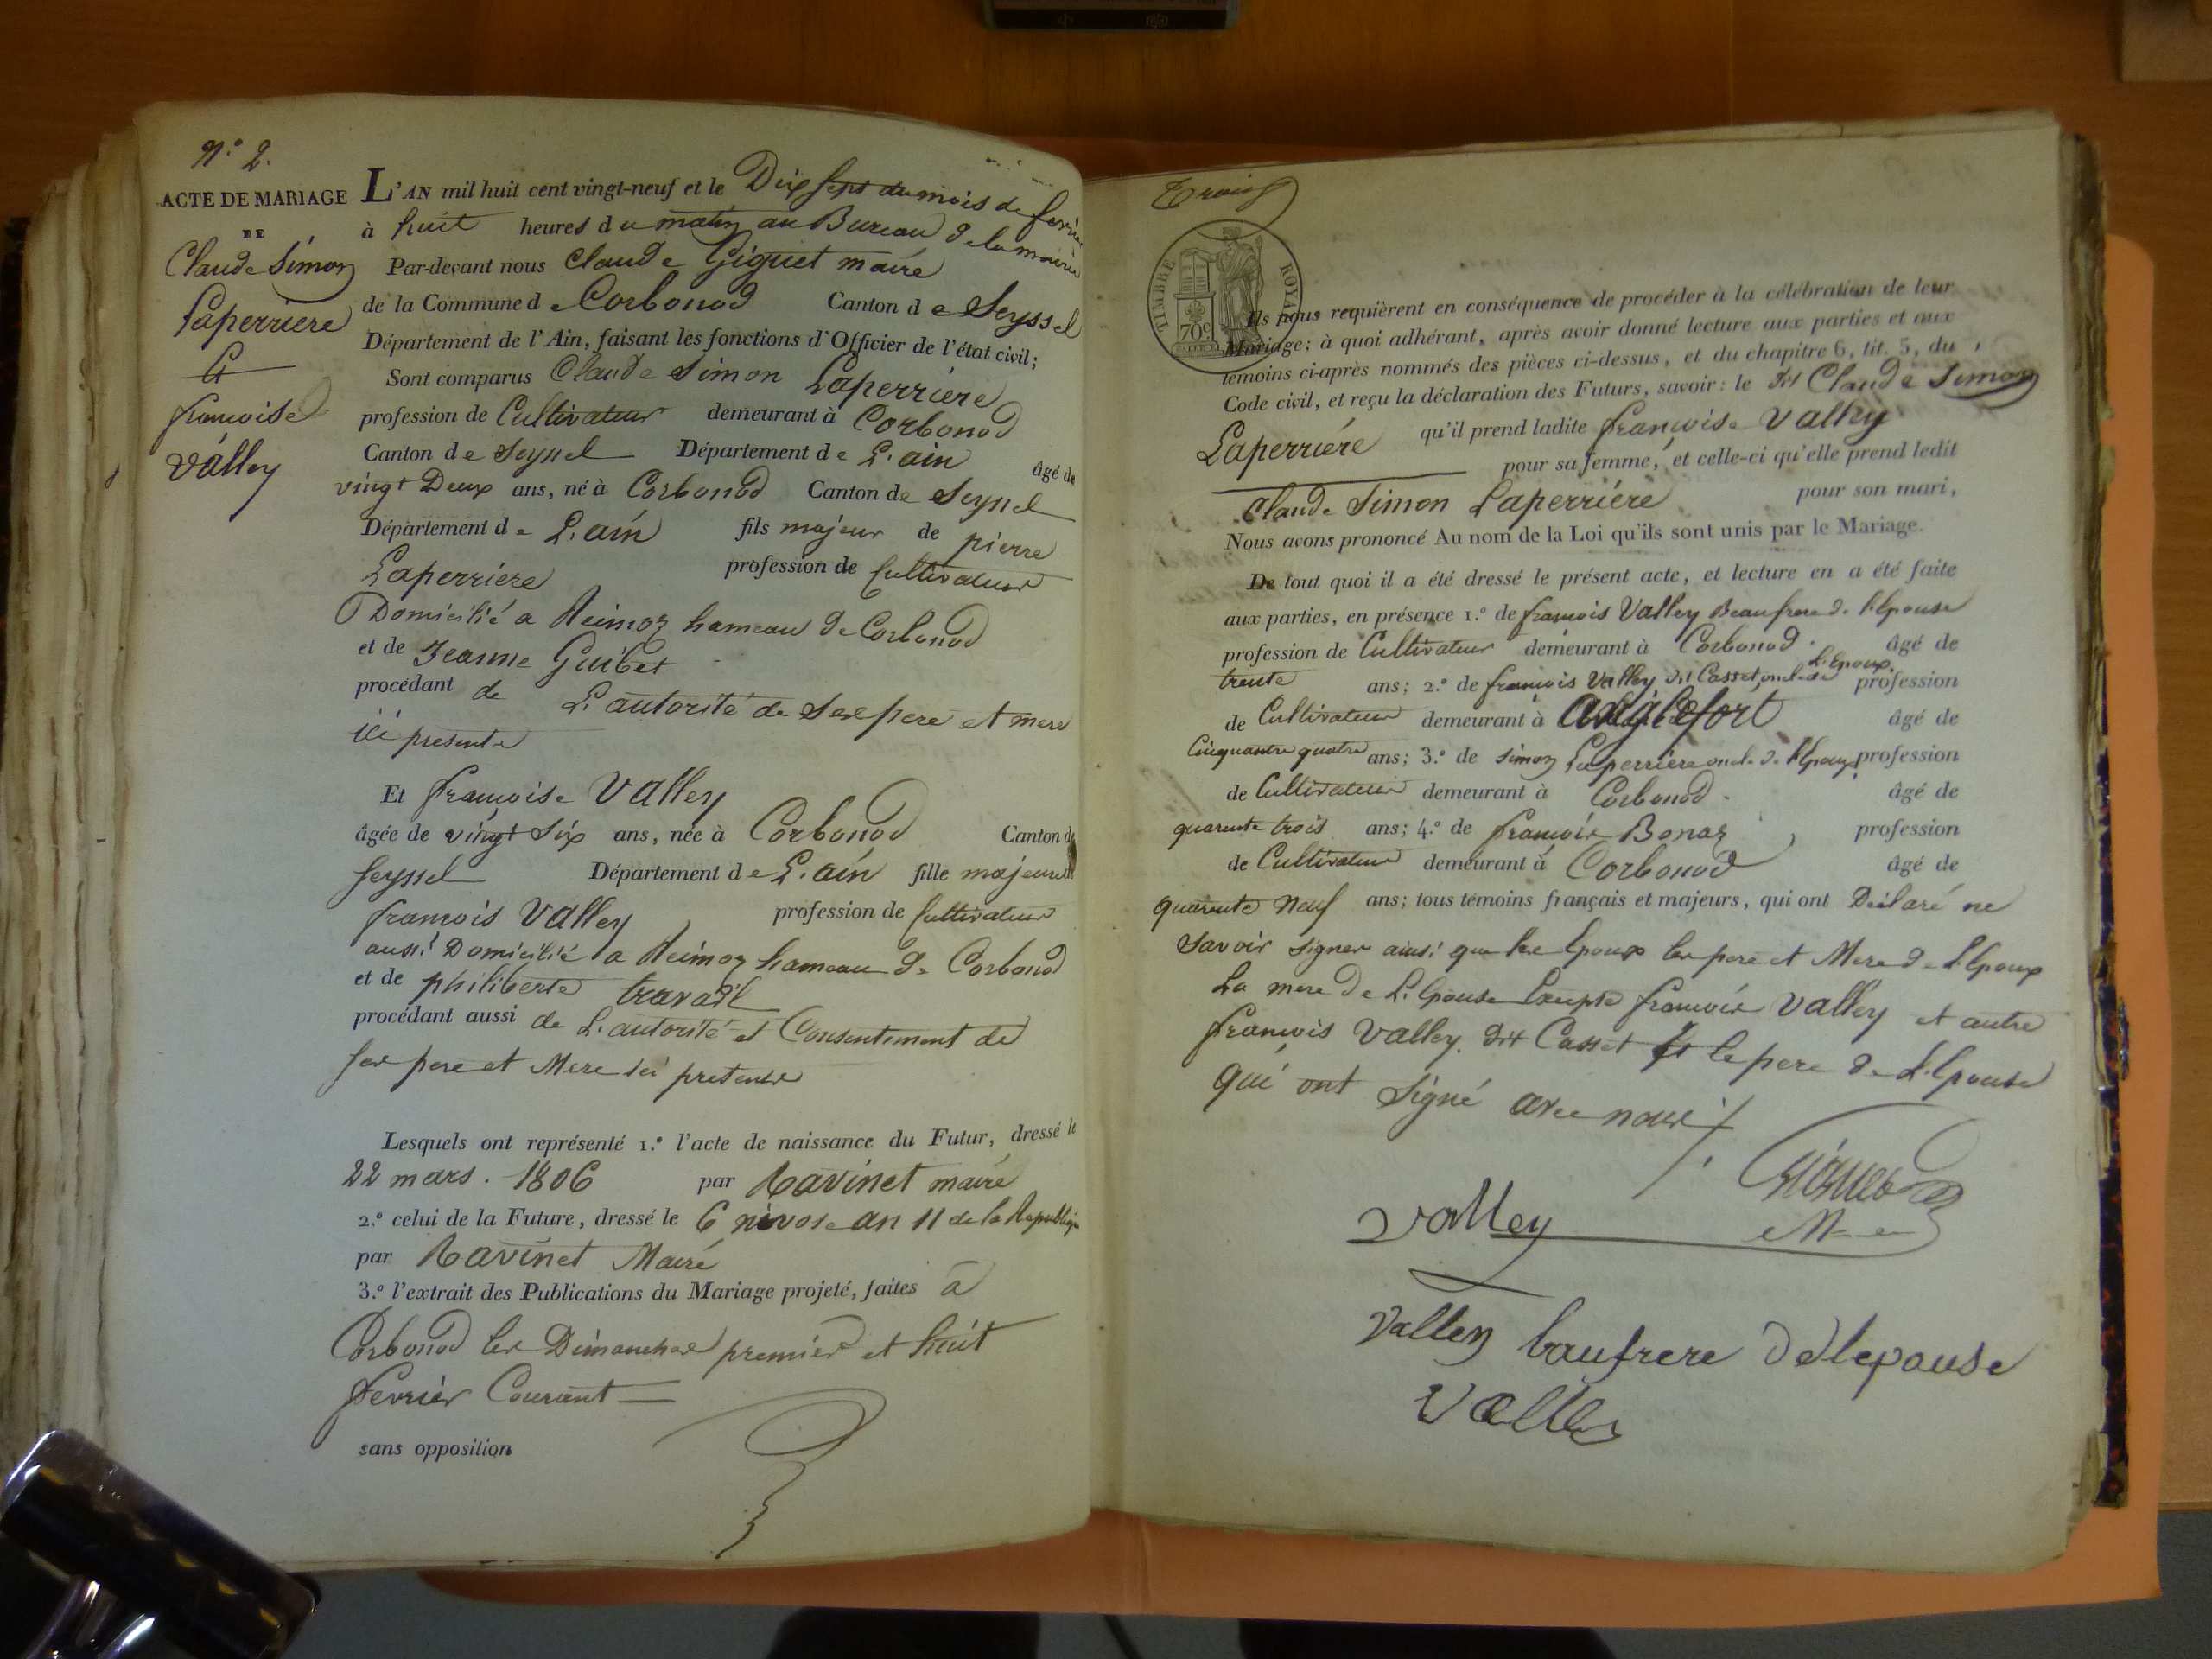 N.o 2.
ACTE DE MARIAGE
DE
Claude Simon
Laperriere
Et
françoise
Valley
L'AN mil huit cent vingt-neuf et le Dix sept du mois de fevrier
à huit heures du matin au Bureau de la mairie
Par-devant nous Claude Giguet maire
de la Commune de Corbonod Canton de Seyssel
Département de l'Ain, faisant les fonctions d'Officier de l'état civil;
Sont comparus Claude Simon Laperriére
profession de Cultivateur demeurant à Corbonod
Canton de Seyssel Département de L'ain âgé de
vingt Deux ans, né à Corbonod Canton de Seyssel
Département de L'ain fils majeur de pierre
Laperriere profession de Cultivateur
Domicilié a Reimoz hameau de Corbonod
et de Jeanne Guibet
procédant de L'autorité de Ses pere et mere
ici presents
Et françoise Valley
âgée de vingt Six ans, née à Corbonod Canton de
Seyssel Département de L'ain fille majeure
françois Valley profession de Cultivateur
aussi Domicilié a Reimoz hameau de Corbonod
et de philiberte travail
procédant aussi de L'autorité et Consentement de
ses pere et Mere ici presents
Lesquels ont représenté 1.o l'acte de naissance du Futur, dressé le
22 mars. 1806 par Ravinet maire
2.o celui de la Future, dressé le 6 nivose an 11 de la Republique
par Ravinet Maire
3.o l'extrait des Publications du Mariage projeté, faites a
Corbonod les Dimanches premier et huit
fevrier Courant
sans opposition
Trois
TIMBRE ROYAL
70 c
Ils nous requièrent en conséquence de procéder à la célébration de leur
Mariage; à quoi adhérant, après avoir donné lecture aux parties et aux
témoins ci-après nommés des pièces ci-dessus, et du chapitre 6, tit. 5, du
Code civil, et reçu la déclaration des Futurs, savoir: le dit Claude Simon
Laperriére qu'il prend ladite françoise Valley
pour sa femme, et celle-ci qu'elle prend ledit
Claude Simon Laperriére pour son mari,
Nous avons prononcé Au nom de la Loi qu'ils sont unis par le Mariage.
De tout quoi il a été dressé le présent acte, et lecture en a été faite
aux parties, en présence 1.o de françois Valley Beaufrere de l'Epouse
profession de Cultivateur demeurant à Corbonod. âgé de
trente ans; 2.o de françois Valley dit Casset, oncle de L'Epoux profession
de Cultivateur demeurant à Anglefort âgé de
Cinquante quatre ans; 3.o de Simon Laperriere oncle de l'Epoux profession
de Cultivateur demeurant à Corbonod. âgé de
quarente trois ans; 4.o de françois Bonaz profession
de Cultivateur demeurant à Corbonod âgé de
quarente Neuf ans; tous témoins français et majeurs, qui ont Déclaré ne
savoir signer ainsi que les Epoux les pere et Mere de L'Epoux
La mere de L'Epouse Excepté françois Valley et autre
françois Valley dit Casset et le pere de L'Epouse
qui ont Signé avec nous
Giguet
Valley
Mre
Valley baufrere delepouse
Valley